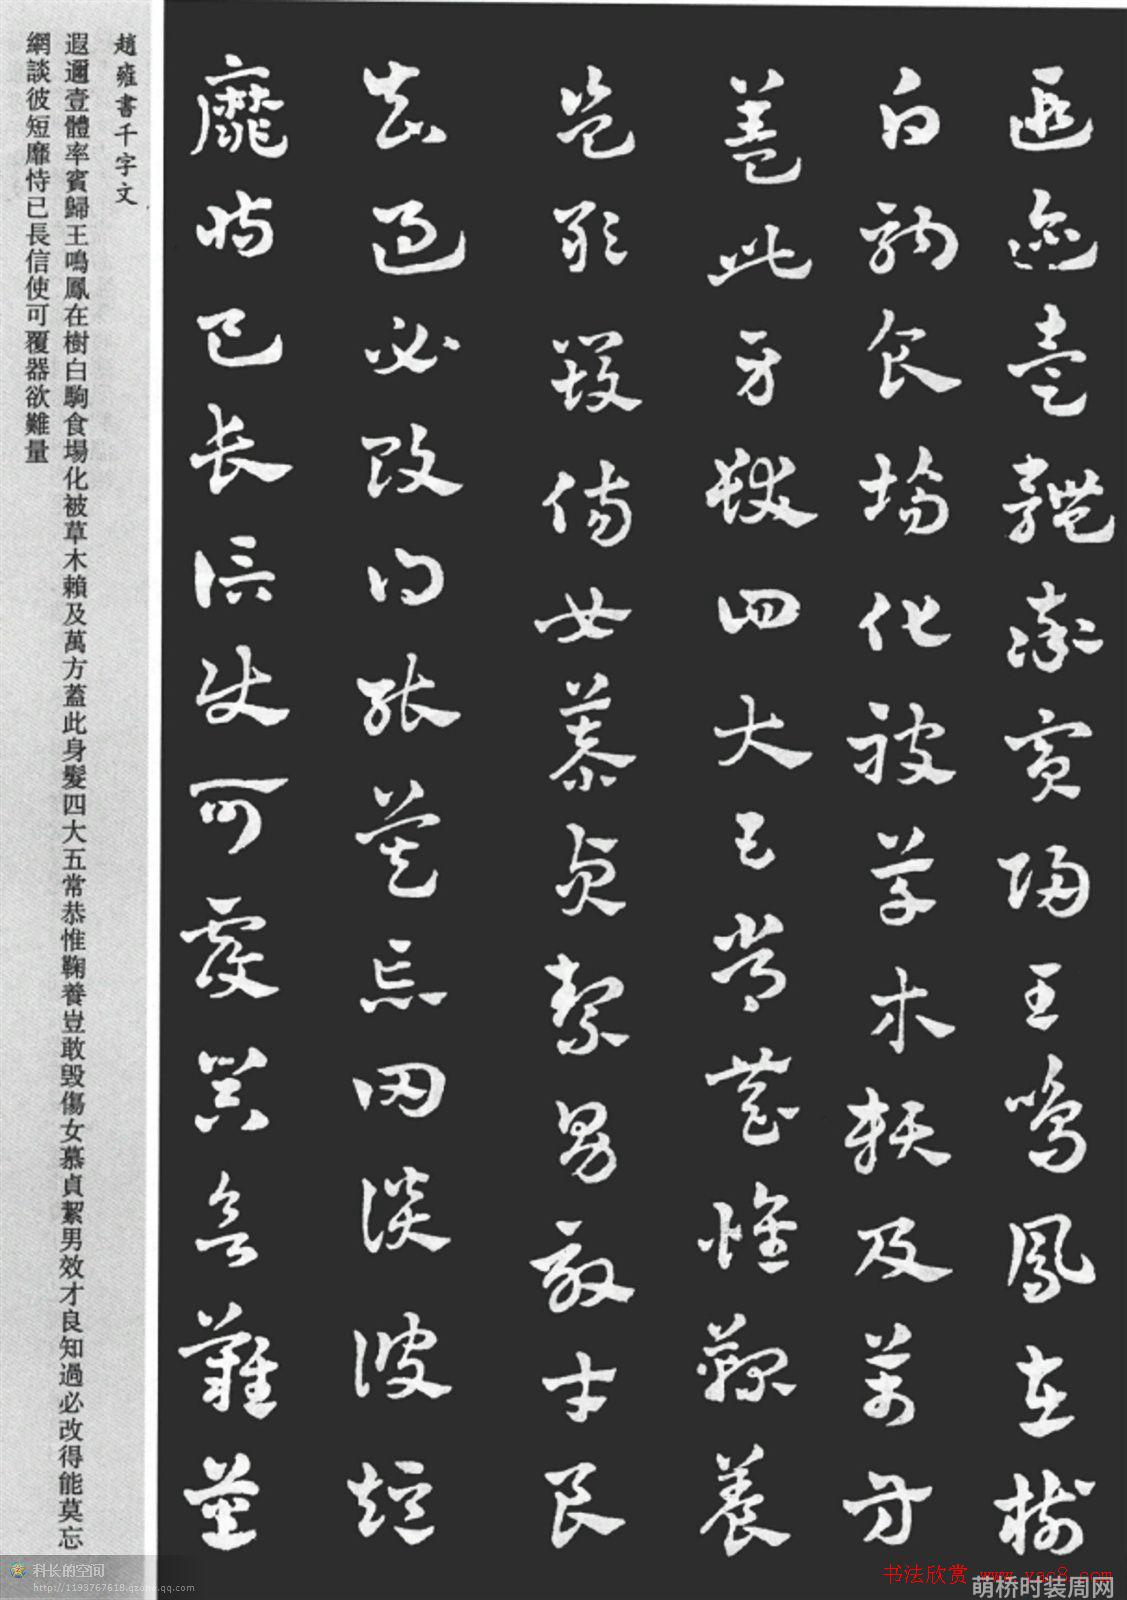 遐邇壹體率賓歸王鳴鳳在樹
白駒食場化被草木賴及萬方
蓋此身髮四大五常恭惟鞠養
豈敢毀傷女慕貞絜男效才良
知過必改得能莫忘罔談彼短
靡恃已長信使可覆器欲難量
趙雍書千字文
遐邇壹體率賓歸王鳴鳳在樹白駒食場化被草木賴及萬方蓋此身髮四大五常恭惟鞠養豈敢毀傷女慕貞絜男效才良知過必改得能莫忘
網談彼短靡恃已長信使可覆器欲難量
科长的空间
http://1193767618.qzone.qq.com
书法欣赏 www.yac8.com
萌桥时装周网